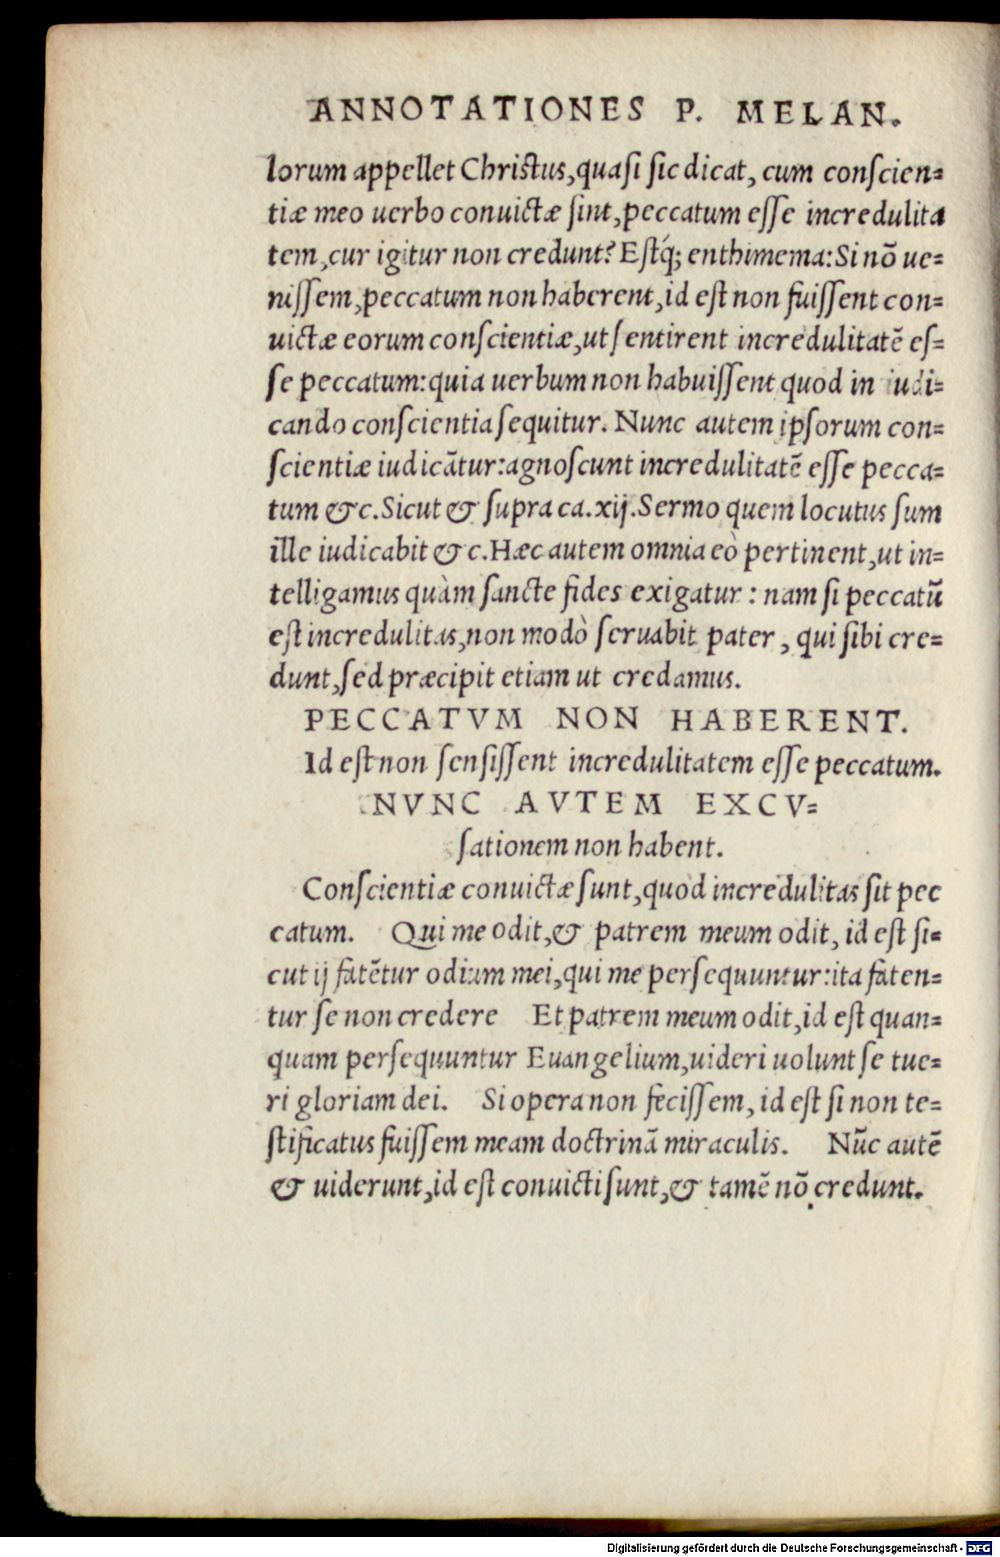 ANNOTATIONES P. MELAN.
lorum appellet Christus, quasi sic dicat, cum conscien=
tiæ meo uerbo conuictæ sint, peccatum esse incredulita
tem, cur igitur non credunt? Estq́; enthimema: Si nõ ue=
nissem, peccatum non haberent, id est non fuissent con=
uictæ eorum conscientiæ, ut sentirent incredulitatẽ es=
se peccatum: quia uerbum non habuissent quod in iudi=
cando conscientia sequitur. Nunc autem ipsorum con=
scientiæ iudicãtur: agnoscunt incredulitatẽ esse pecca=
tum & c. Sicut & supra ca. xij. Sermo quem locutus sum
ille iudicabit & c. Hæc autem omnia eò pertinent, ut in=
telligamus quàm sancte fides exigatur : nam si peccatũ
est incredulitas, non modò seruabit pater , qui sibi cre=
dunt, sed præcipit etiam ut credamus.
PECCATVM NON HABERENT.
Id est non sensissent incredulitatem esse peccatum.
NVNC AVTEM EXCV=
sationem non habent.
Conscientiæ conuictæ sunt, quod incredulitas sit pec
catum. Qui me odit, & patrem meum odit, id est si=
cut ij fatẽtur odium mei, qui me persequuntur: ita faten=
tur se non credere Et patrem meum odit, id est quan=
quam persequuntur Euangelium, uideri uolunt se tue=
ri gloriam dei. Si opera non fecissem, id est si non te=
stificatus fuissem meam doctrinã miraculis. Nũc autẽ
& uiderunt, id est conuicti sunt, & tamẽ nõ credunt.
Digitalisierung gefördert durch die Deutsche Forschungsgemeinschaft - DFG